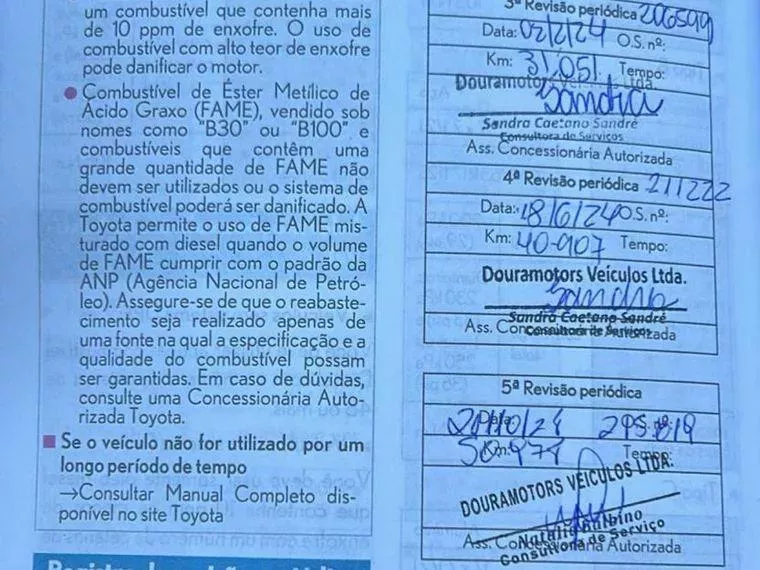 um combustível que contenha mais
de 10 ppm de enxofre. O uso de
combustível com alto teor de enxofre
pode danificar o motor.
Combustível de Éster Metílico de
Ácido Graxo (FAME), vendido sob
nomes como "B30" ou "B100" e
combustíveis que contêm uma
grande quantidade de FAME não
devem ser utilizados ou o sistema de
combustível poderá ser danificado. A
Toyota permite o uso de FAME mis-
turado com diesel quando o volume
de FAME cumprir com o padrão da
ANP (Agência Nacional de Petró-
leo). Assegure-se de que o reabaste-
cimento seja realizado apenas de
uma fonte na qual a especificação e a
qualidade do combustível possam
ser garantidas. Em caso de dúvidas,
consulte uma Concessionária Auto-
rizada Toyota.
Se o veículo não for utilizado por um
longo período de tempo
→Consultar Manual Completo dis-
ponível no site Toyota
3ª Revisão periódica 206599
Data: 02/2/24 O.S. nº:
Km: 31.051 Tempo:
Douramotors Veículos Ltda.
Sandra
Sandra Caetano Sandré
Consultora de Serviços
Ass. Concessionária Autorizada
4ª Revisão periódica 211222
Data: 18/6/24 O.S. nº:
Km: 40.907 Tempo:
Douramotors Veículos Ltda.
Sandra
Sandra Caetano Sandré
Consultora de Serviços
Ass. Concessionária Autorizada
5ª Revisão periódica
Data: O.S. nº:
Km: Tempo:
DOURAMOTORS VEÍCULOS LTDA.
Consultora de Serviço
Ass. Concessionária Autorizada